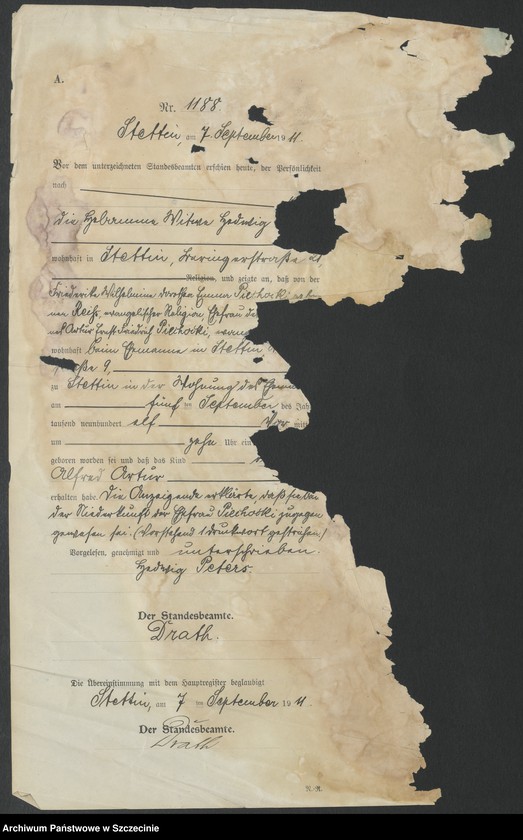 A.
Nr. 1188.
Stettin, am 7. September 1911.
Vor dem unterzeichneten Standesbeamten erschien heute, der Persönlichkeit
nach
die Hebamme Witwe Hedwig
wohnhaft in Stettin,
Religion, und zeigte an, daß von der
Friederike Wilhelmine Dorothea Emma Piechocki
evangelischer Religion, Ehefrau
Artur Ernst Friedrich Piechocki,
wohnhaft beim Ehemanne in Stettin,
9,
zu Stettin in der Wohnung des
am fünf ten September des
tausend neunhundert elf Vor
um zehn Uhr ein
geboren worden sei und daß das Kind
Alfred Artur
erhalten habe. Die Anzeigende erklärte, daß sie bei
der Niederkunft der Ehefrau Piechocki zugegen
gewesen sei. (Vorstehend 1 Druckwort gestrichen.)
Vorgelesen, genehmigt und unterschrieben.
Hedwig Peters.
Der Standesbeamte.
Drath.
Die Übereinstimmung mit dem Hauptregister beglaubigt
Stettin, am 7 ten September 1911.
Der Standesbeamte.
Drath
Archiwum Państwowe w Szczecinie